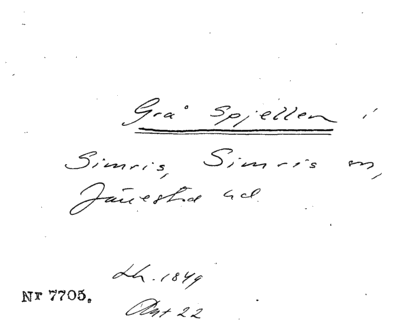 Grå Spjellen i
Simris, Simris sn,
Järrestad hd.
Lh. 1849
Nr 7705.
Akt 22